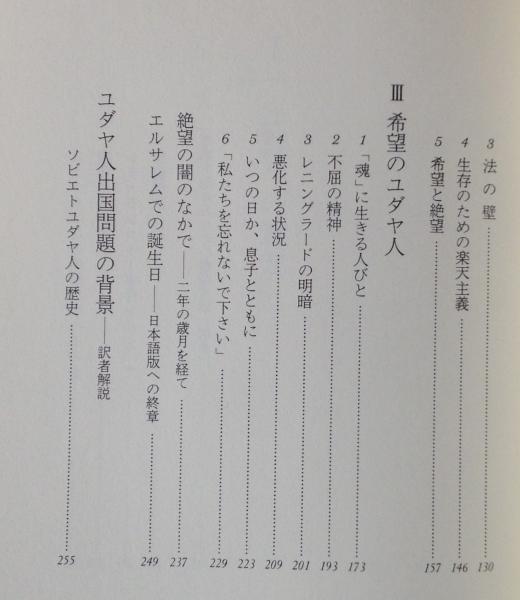 3 法の壁 130
4 生存のための楽天主義 146
5 希望と絶望 157
Ⅲ 希望のユダヤ人
1 「魂」に生きる人びと 173
2 不屈の精神 193
3 レニングラードの明暗 201
4 悪化する状況 209
5 いつの日か、息子とともに 223
6 「私たちを忘れないで下さい」 229
絶望の闇のなかで——二年の歳月を経て 237
エルサレムでの誕生日——日本語版への終章 249
ユダヤ人出国問題の背景——訳者解説
ソビエトユダヤ人の歴史 255